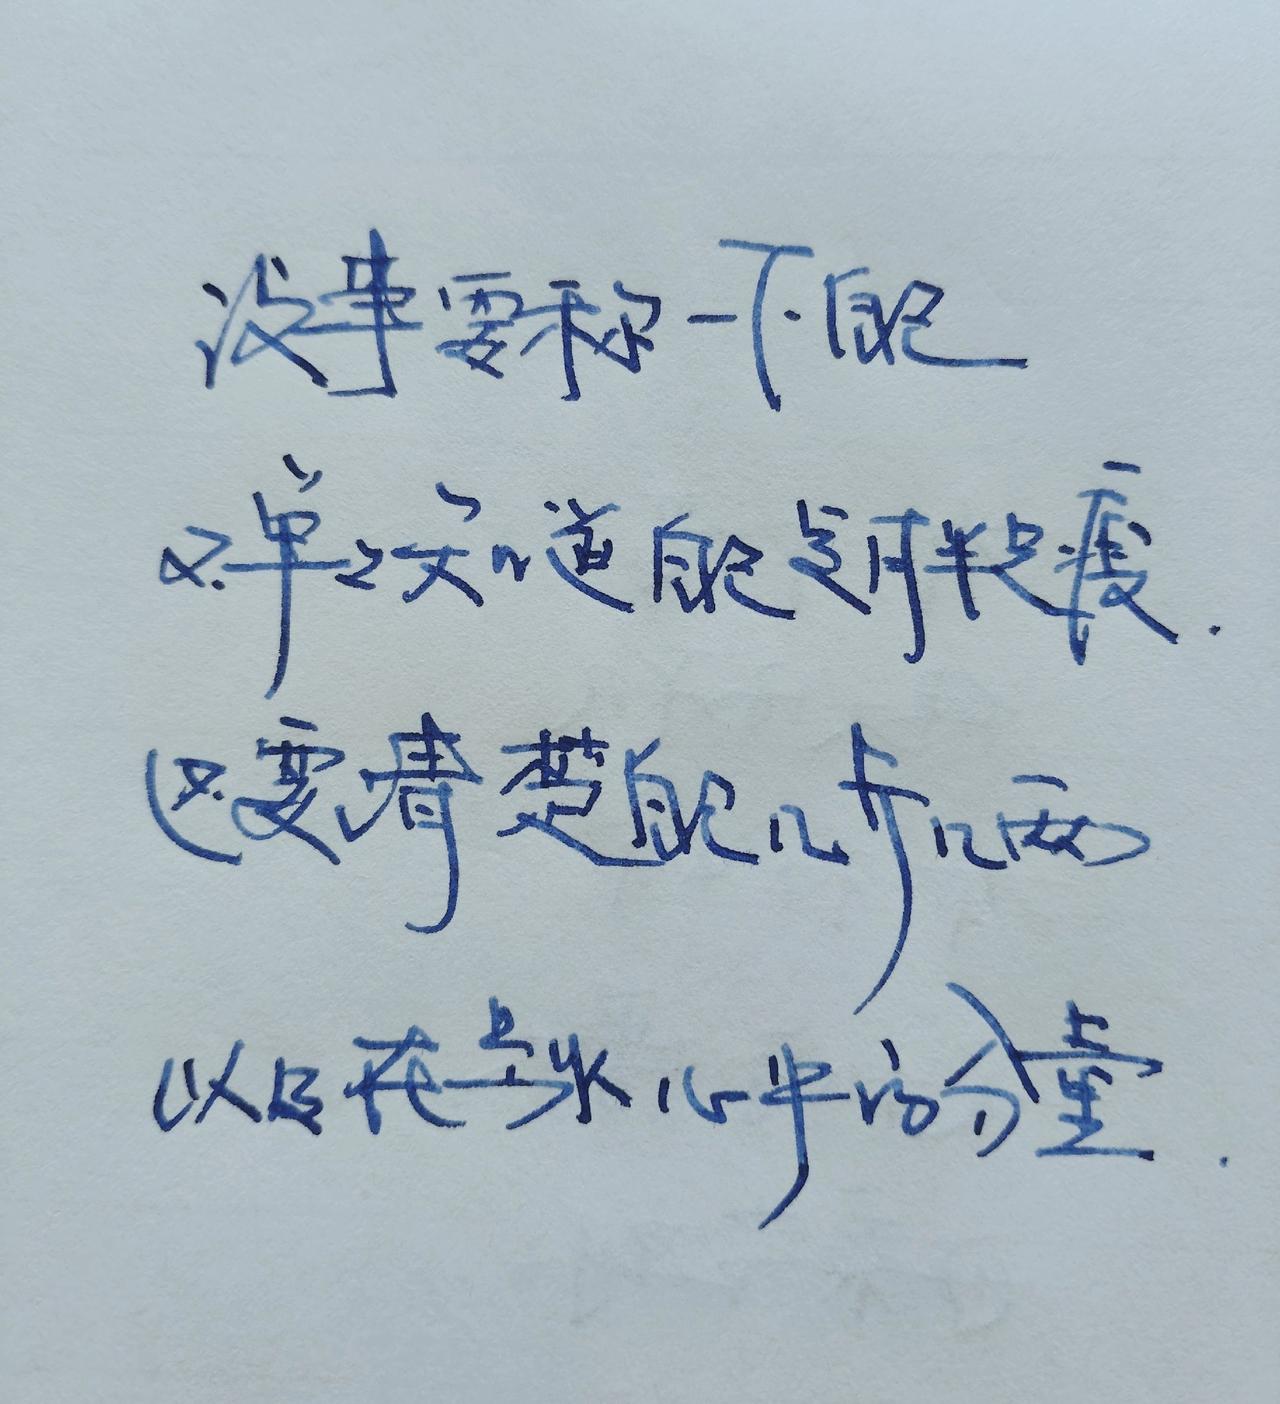 没事要称一下自己
不单知道自己是胖是瘦.
还要清楚自己几斤几两
以及在心中的分量.